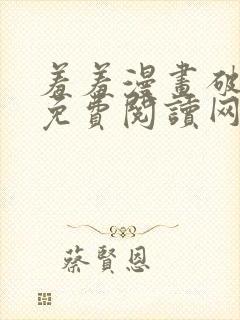 羞羞漫畫破
免費閱讀网
蔡賢恩